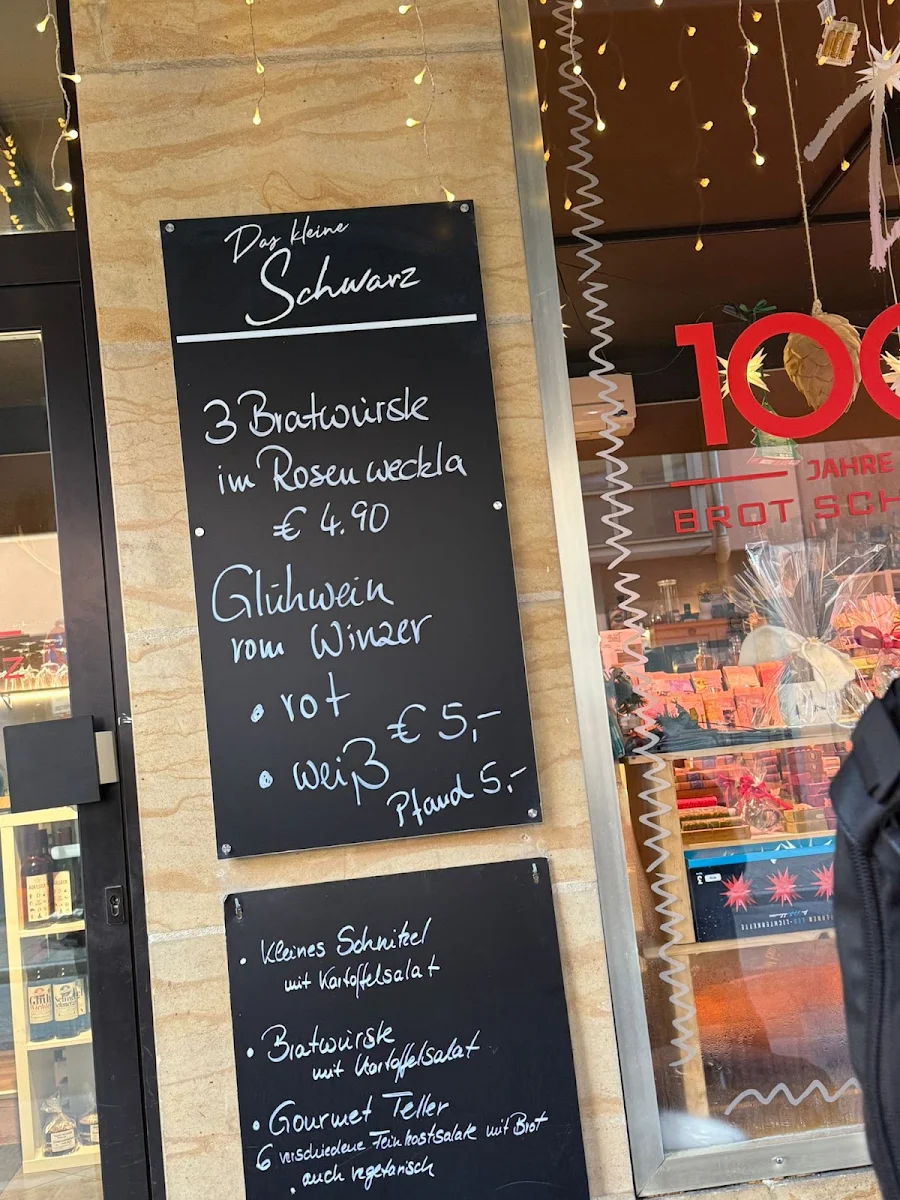 Das kleine
Schwarz
3 Bratwürste
im Rosenweckla
€ 4.90
Glühwein
vom Winzer
• rot
€ 5,-
• weiß
Pfand 5,-
• Kleines Schnitzel
mit Kartoffelsalat
• Bratwürste
mit Kartoffelsalat
• Gourmet Teller
6 verschiedene Feinkostsalate mit Brot
• auch vegetarisch
100
JAHRE
BROT SCH